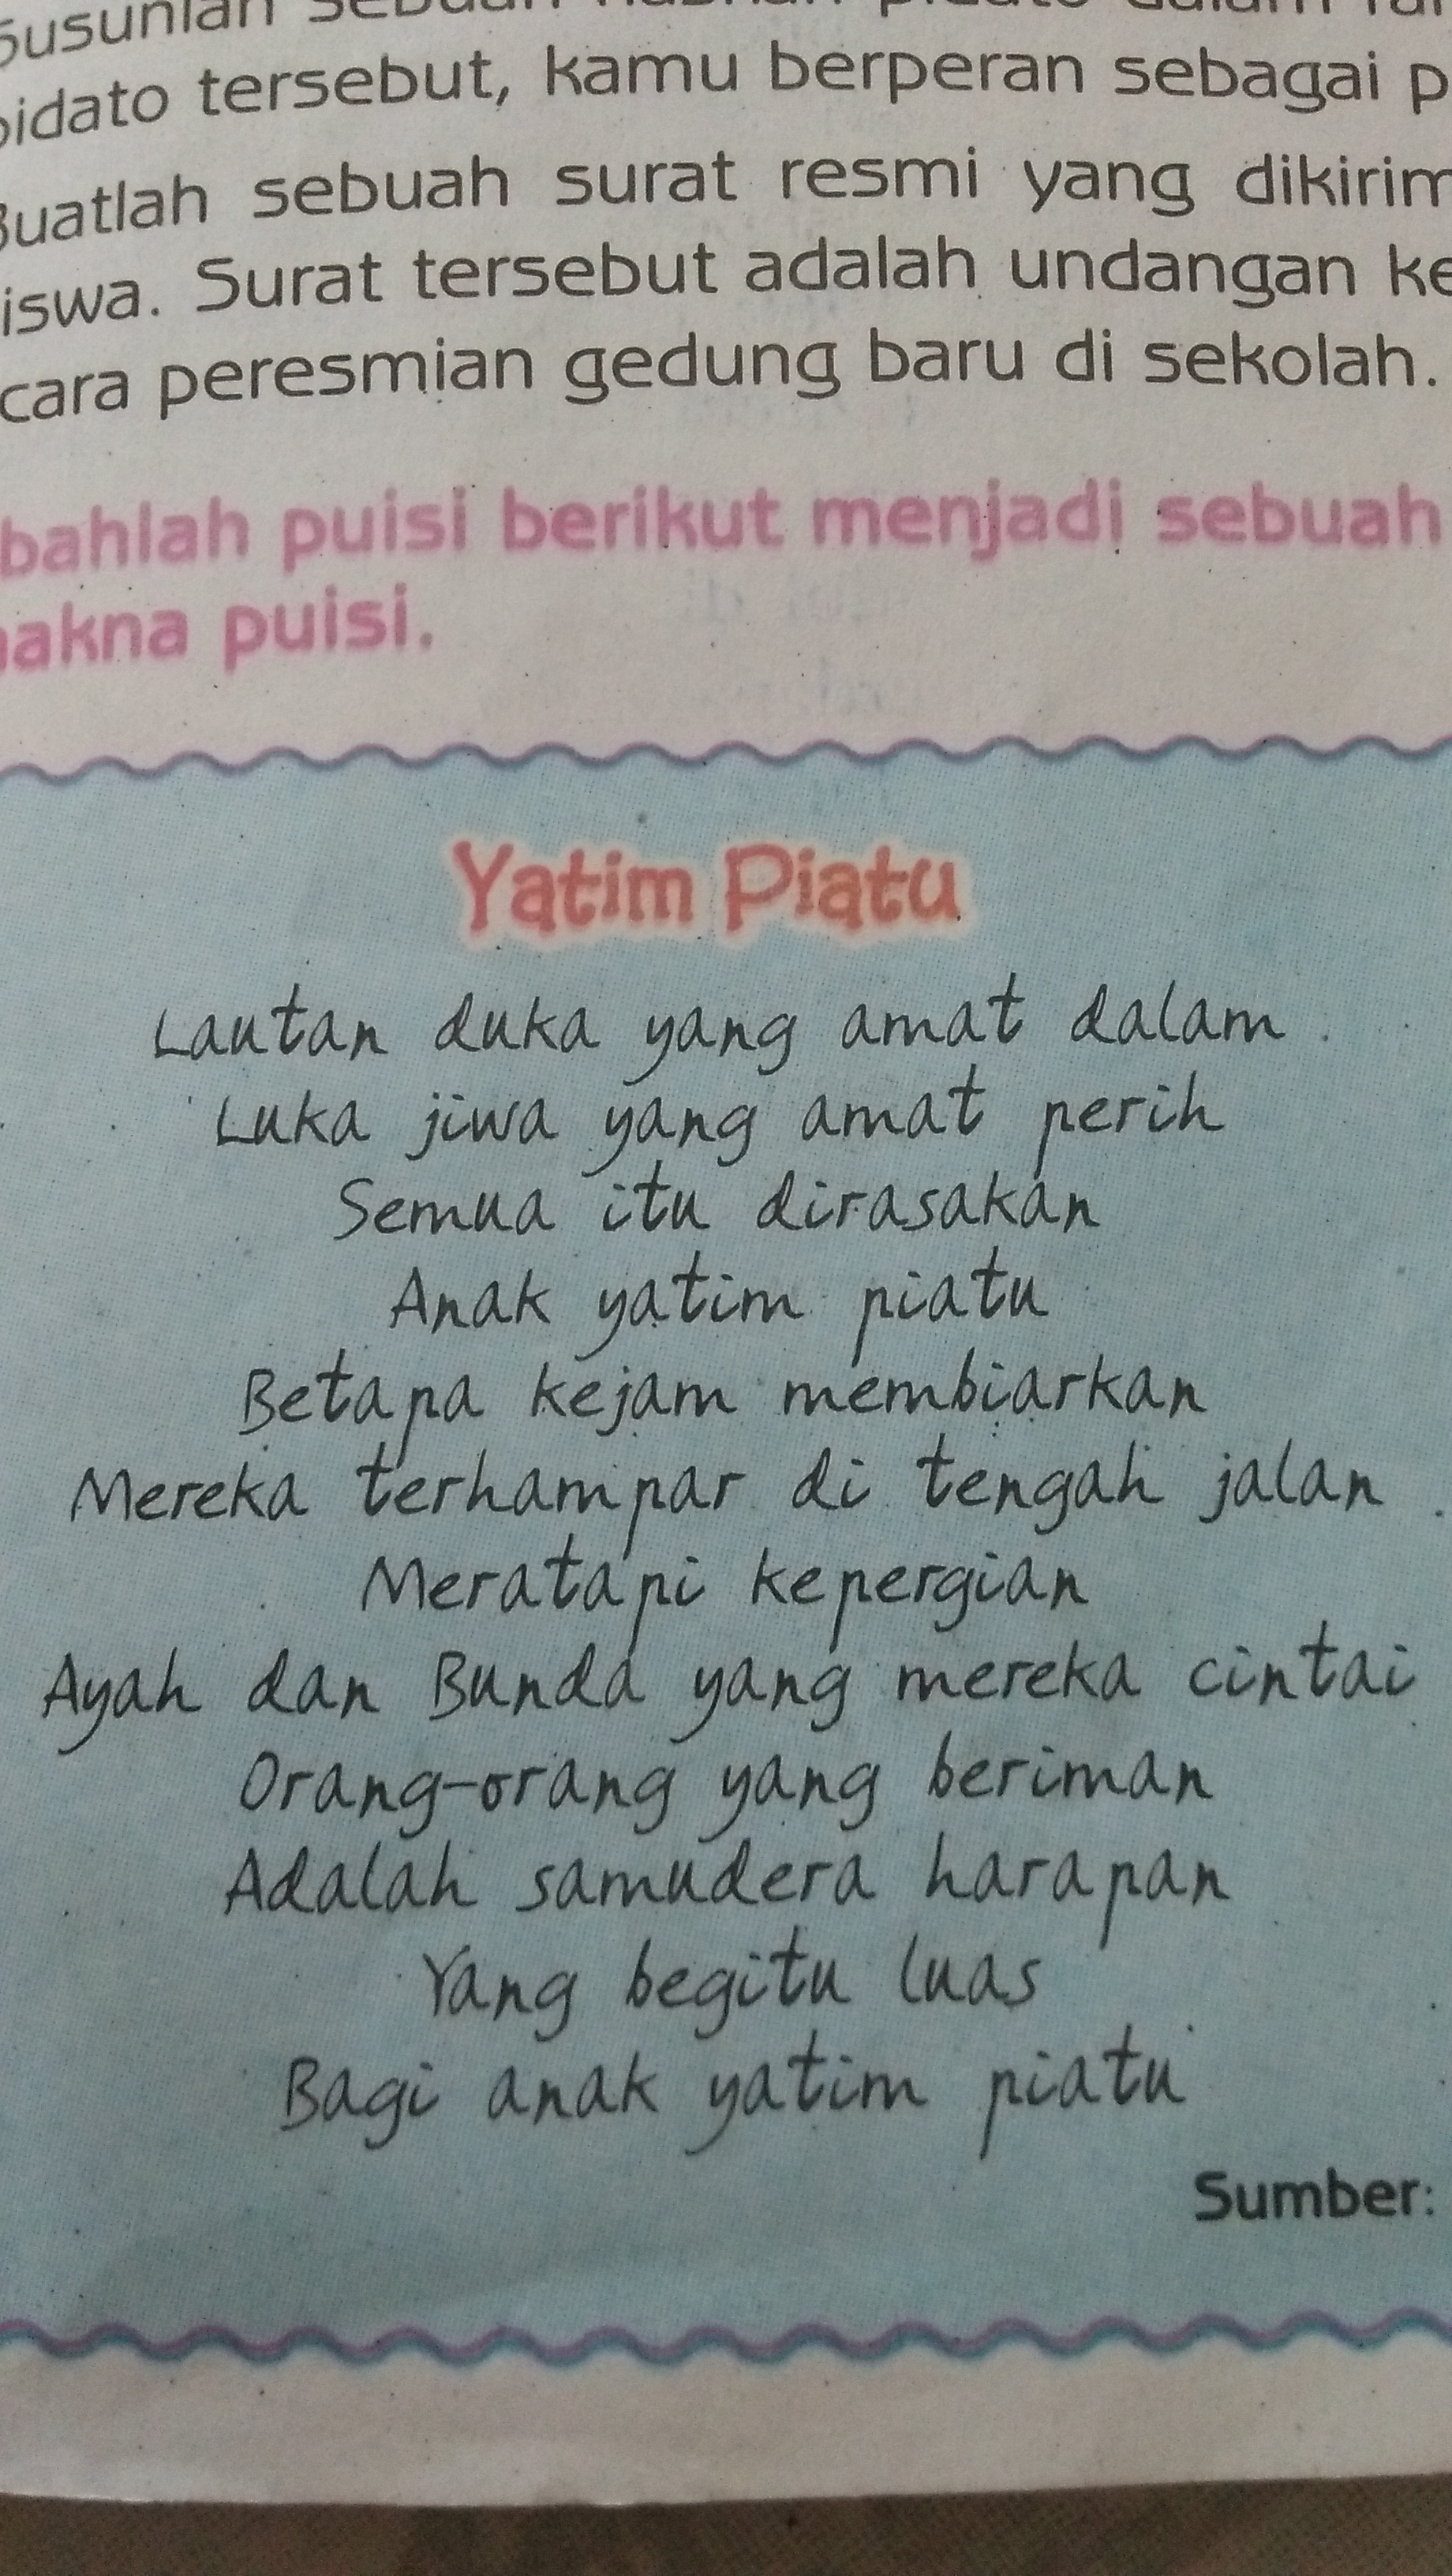 tersebut, kamu berperan sebagai
sebuah surat resmi yang
Surat tersebut adalah undangan
peresmian gedung baru di sekolah.
puisi berikut menjadi sebuah
puisi.
Yatim Piatu
Lautan duka yang amat dalam
Luka jiwa yang amat perih
Semua itu dirasakan
Anak yatim piatu
Betapa kejam membiarkan
Mereka terhampar di tengah jalan
Meratapi kepergian
Ayah dan Bunda yang mereka cintai
Orang-orang yang beriman
Adalah samudera harapan
Yang begitu luas
Bagi anak yatim piatu
Sumber: